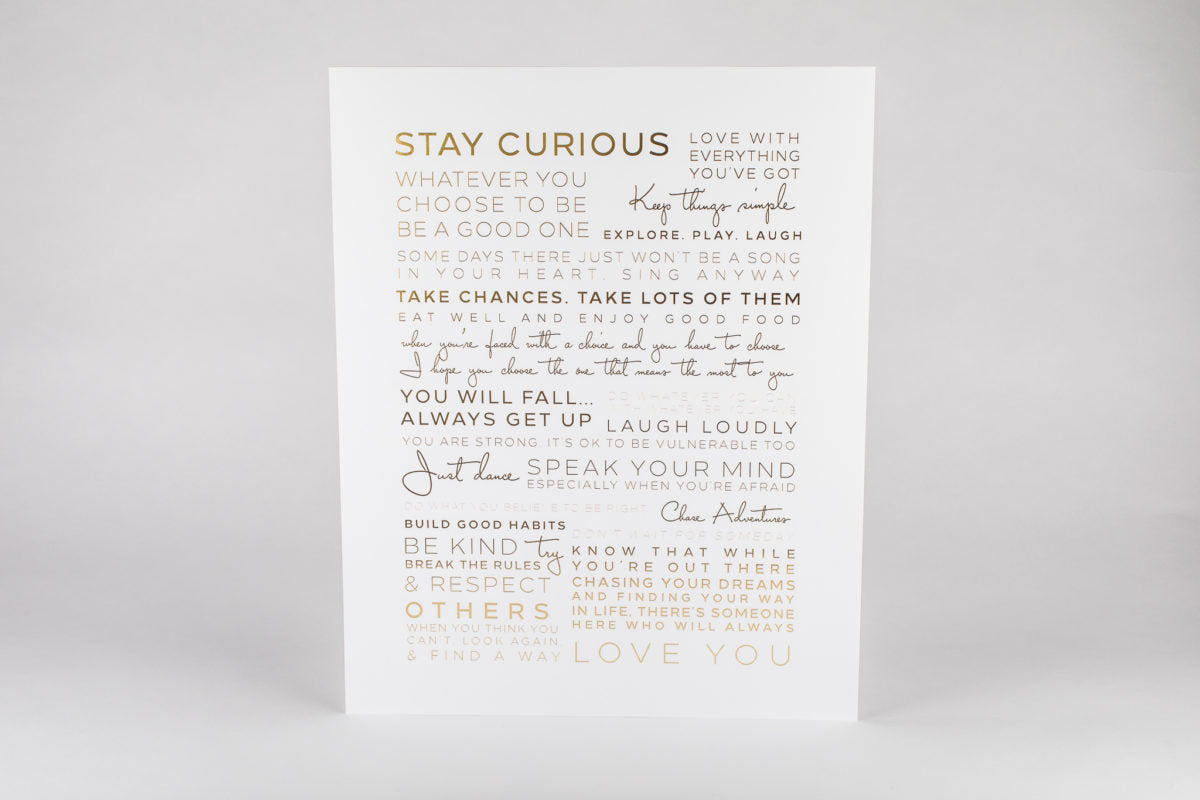 STAY CURIOUS
LOVE WITH
EVERYTHING
YOU'VE GOT
WHATEVER YOU
CHOOSE TO BE
BE A GOOD ONE
Keep things simple
EXPLORE. PLAY. LAUGH
SOME DAYS THERE JUST WON'T BE A SONG
IN YOUR HEART. SING ANYWAY
TAKE CHANCES. TAKE LOTS OF THEM
EAT WELL AND ENJOY GOOD FOOD
when you're faced with a choice and you have to choose
I hope you choose the one that means the most to you
YOU WILL FALL...
ALWAYS GET UP
DO WHATEVER YOU CAN
WITH WHATEVER YOU HAVE
LAUGH LOUDLY
YOU ARE STRONG. IT'S OK TO BE VULNERABLE TOO
Just dance
SPEAK YOUR MIND
ESPECIALLY WHEN YOU'RE AFRAID
DO WHAT YOU BELIEVE TO BE RIGHT
Chase Adventures
BUILD GOOD HABITS
DON'T WAIT FOR SOMEDAY
BE KIND try
BREAK THE RULES
& RESPECT
OTHERS
WHEN YOU THINK YOU
CAN'T, LOOK AGAIN,
& FIND A WAY
KNOW THAT WHILE
YOU'RE OUT THERE
CHASING YOUR DREAMS
AND FINDING YOUR WAY
IN LIFE, THERE'S SOMEONE
HERE WHO WILL ALWAYS
LOVE YOU